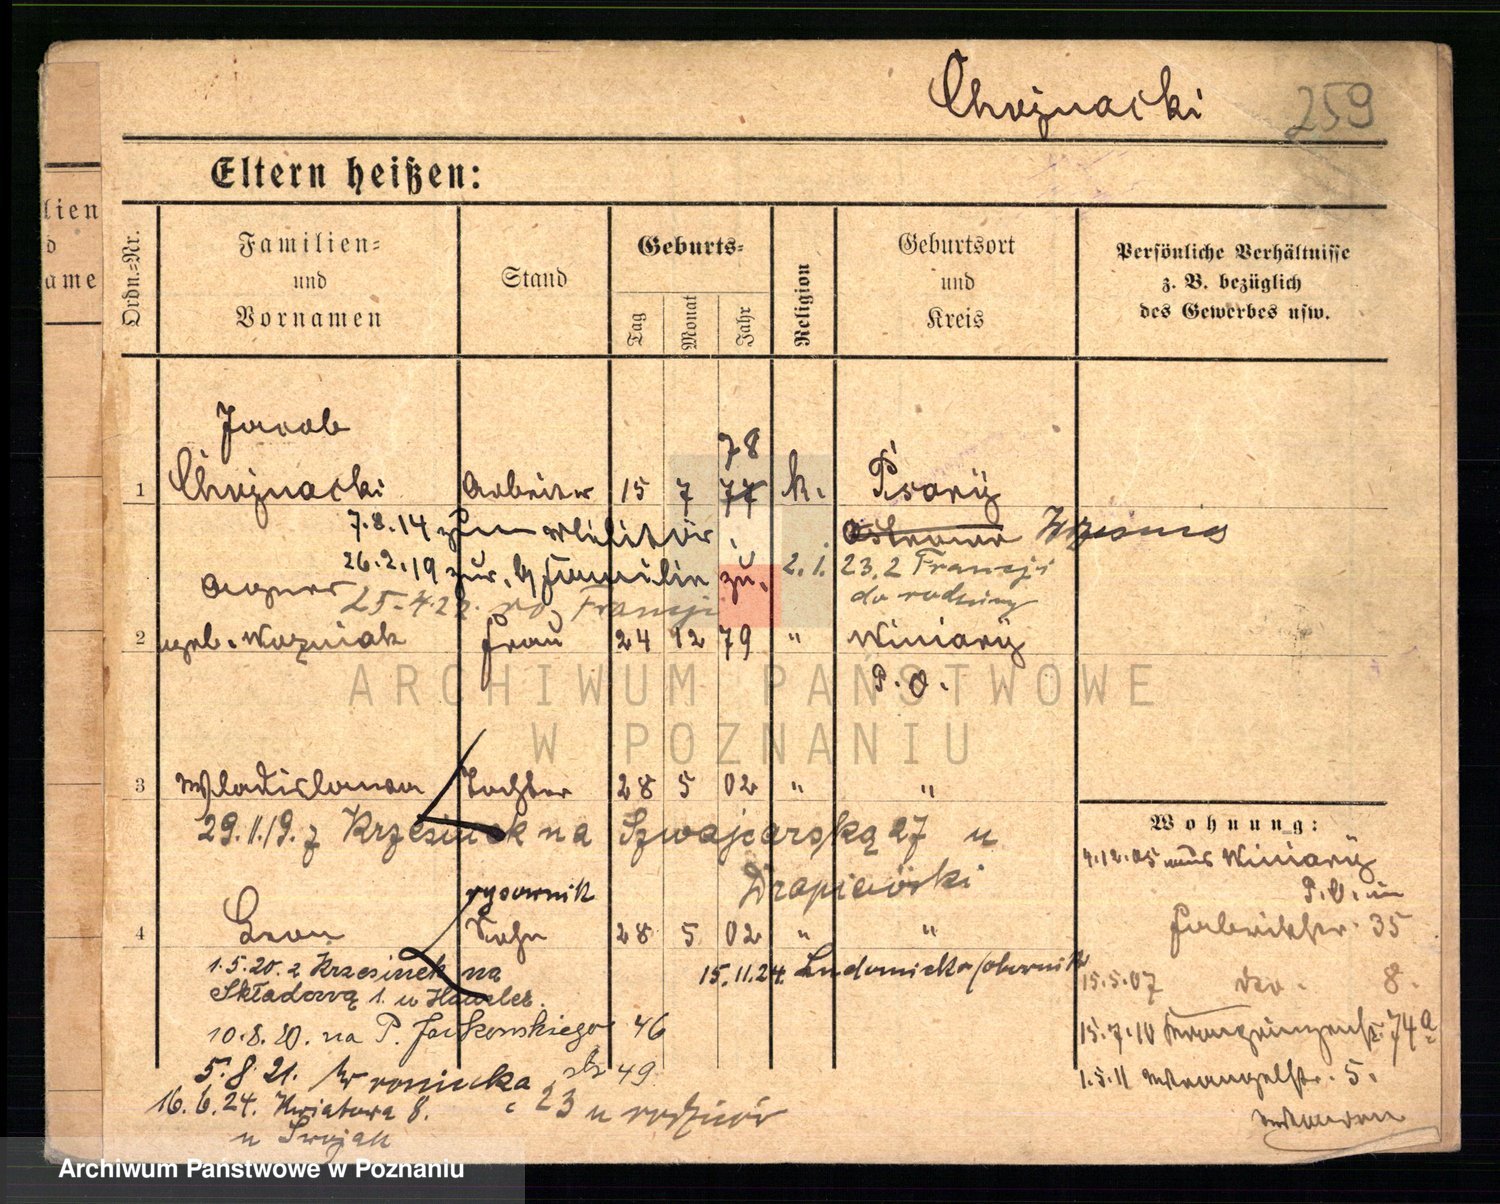 Chojnacki 259
Eltern heißen:
lien
d
ame
Ordn.=Nr.
Familien=
und
Vornamen
Stand
Geburts=
Tag
Monat
Jahr
Religion
Geburtsort
und
Kreis
Persönliche Verhältnisse
z. B. bezüglich
des Gewerbes usw.
Jacob
78
1 Chojnacki Arbeiter 15 7 77 k. Psary
7.8.14 zum Militär. Ostrowo Września
26.2.19 zur. b/ Familie zu. 2.1. 23.2 Francji
Agnes 25-4.22. do Francji do rodziny
2 geb. Wozniak Frau 24 12 79 " Winiary
P. O.
ARCHIWUM PAŃSTWOWE
W POZNANIU
3 Wladislawa Tochter 28 5 02 " "
29.11.19. z Krzesinek na Szwajcarską 27 u
Drapiewski
rysownik
4 Leon Sohn 28 5 02 " "
1.5.20. z Krzesinek na 15.11.24. Ludomicko/obornik
Składową 1. u
10.8.20. na P. Jackowskiego 46
5.8.21. Wroniecka 49
16.6.24. Kwiatowa 8. 23 u rodziców
u
Wohnung:
9.12.05 aus Winiary
P.O. in
Fabrikstr. 35
15.5.07 do. 8.
15.7.10 74a
1.5.11 Wrangelstr. 5.
Archiwum Państwowe w Poznaniu